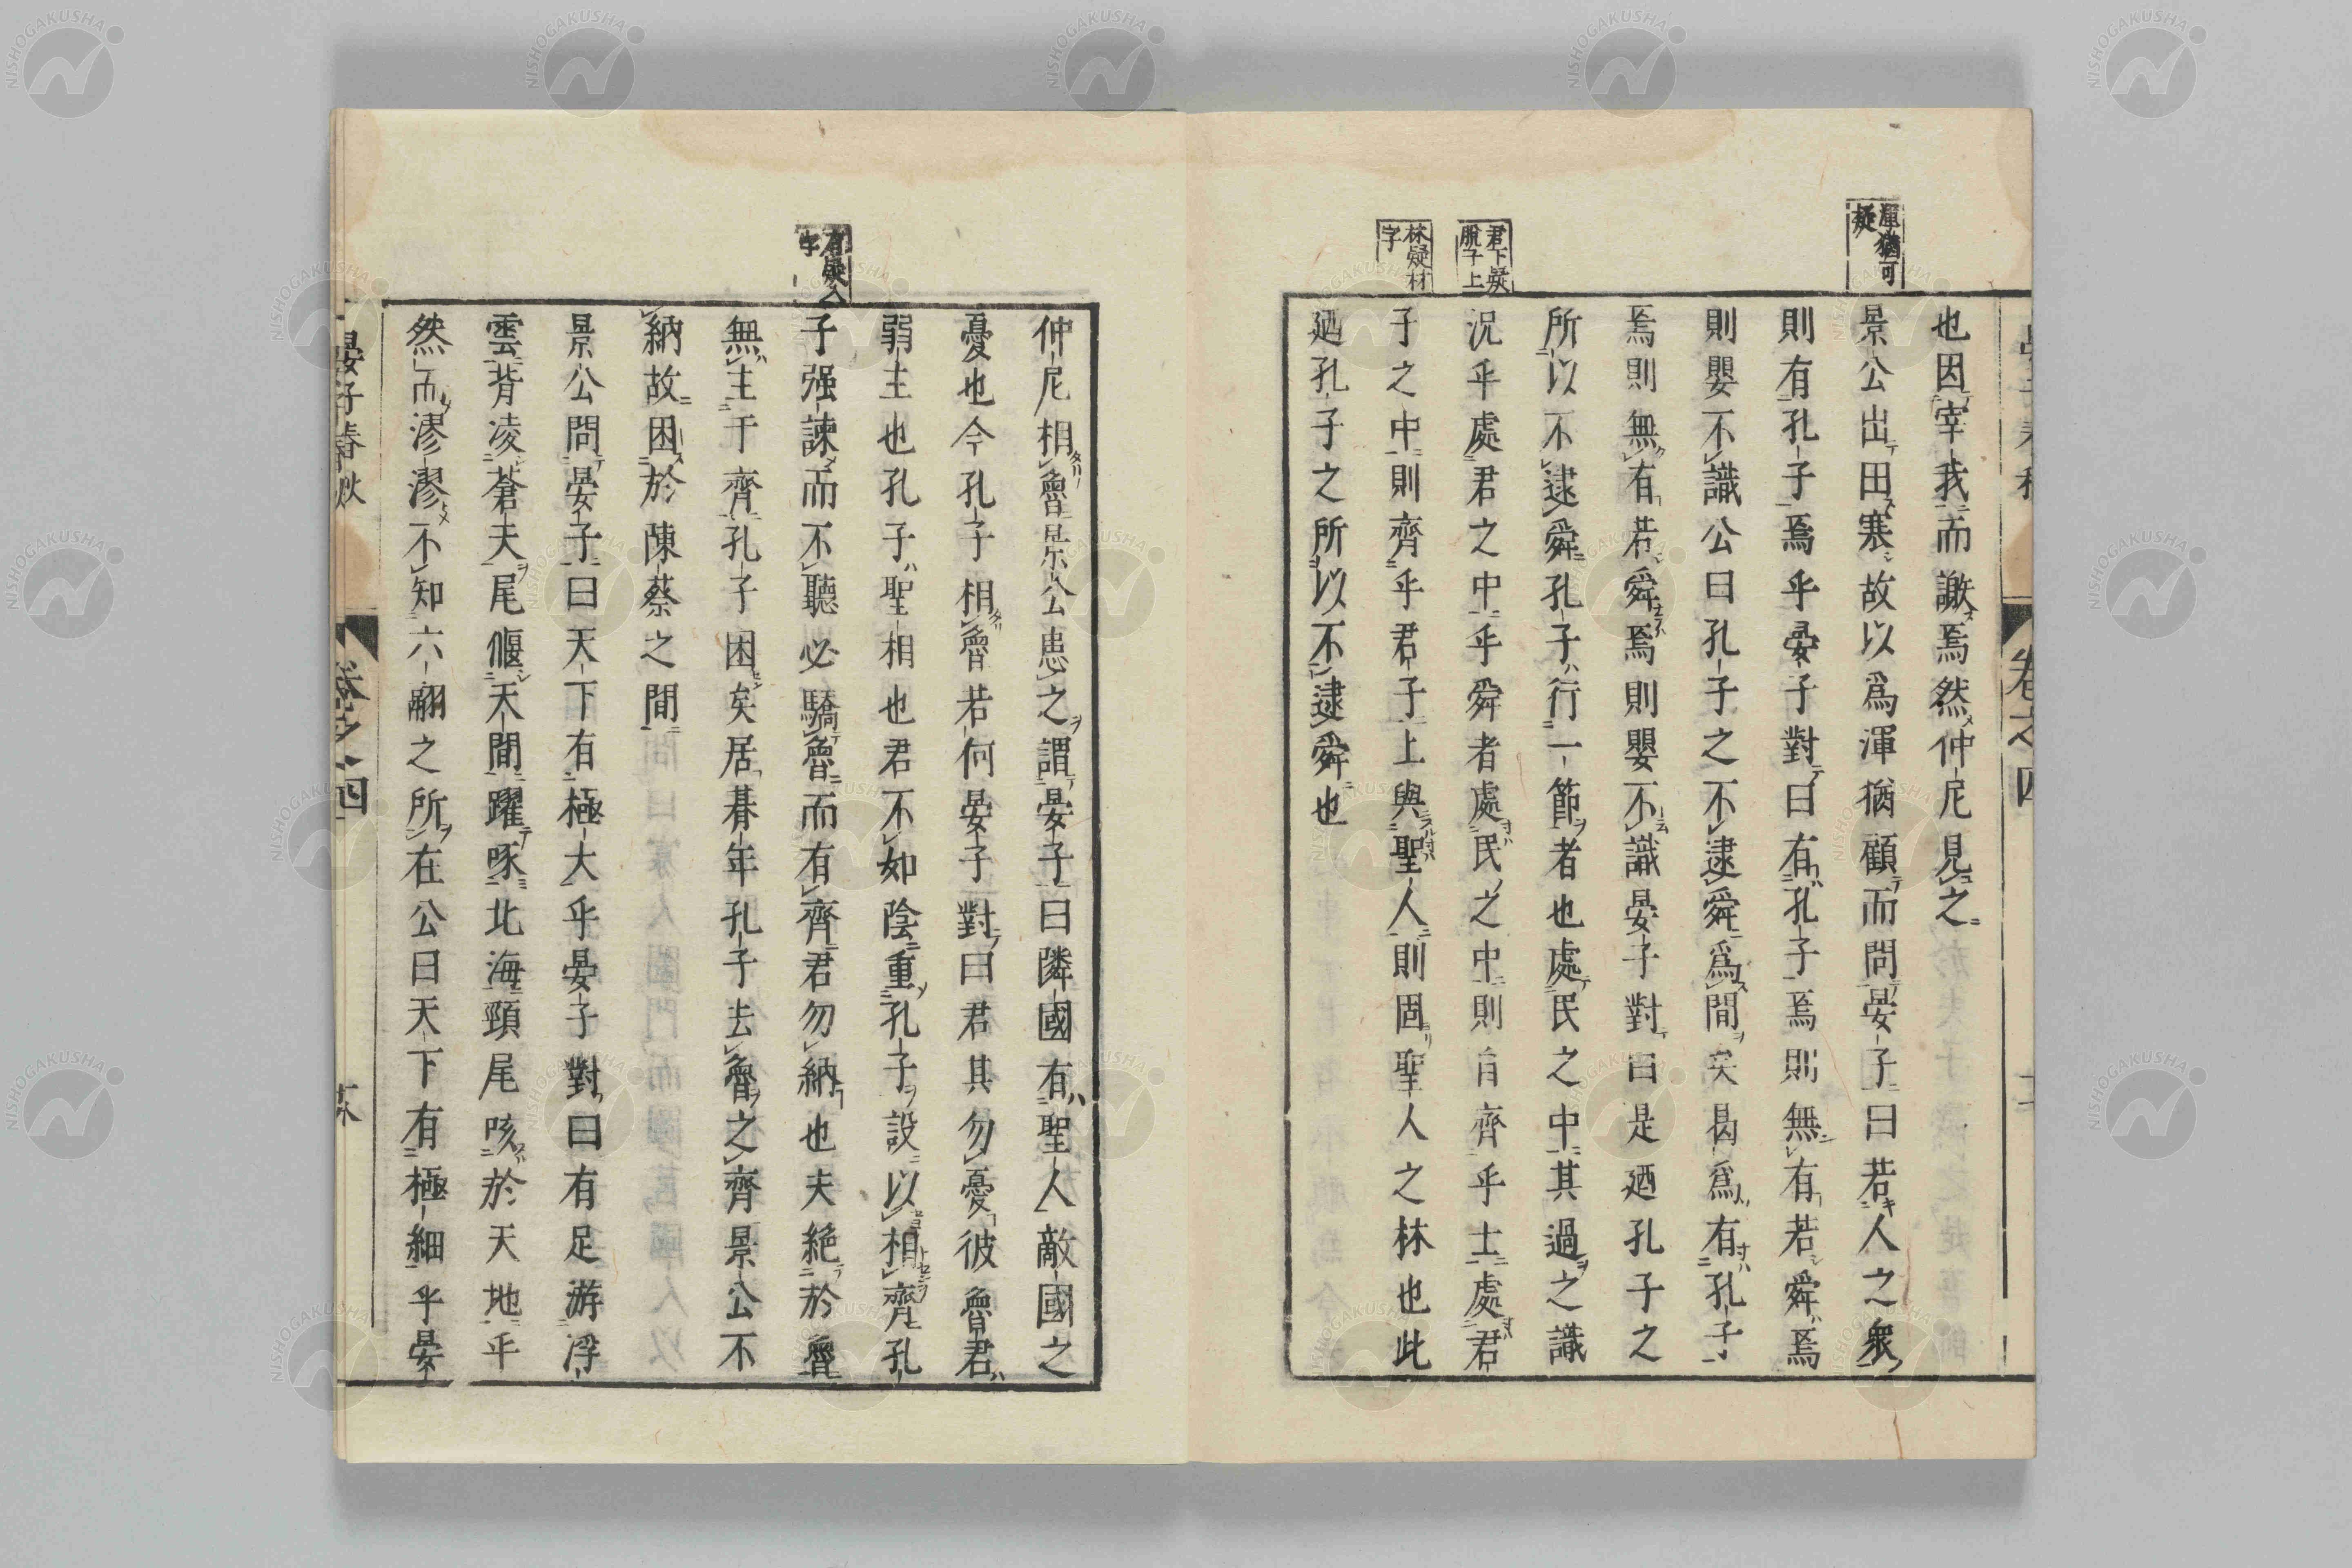 渾猶可
疑
君下疑
脱子上
林疑材
字
也因宰我而謝焉然仲尼見之
景公出田寒故以爲渾猶顧而問晏子曰若人之衆
則有孔子焉乎晏子對曰有孔子焉則無有若舜焉
則嬰不識公曰孔子之不逮舜爲間矣曷爲有孔子
焉則無有若舜焉則嬰不識晏子對曰是廼孔子之
所以不逮舜孔子行一節者也處民之中其過之識
況乎處君之中乎舜者處民之中則自齊乎士處君
子之中則齊乎君子上與聖人則固聖人之林也此
廼孔子之所以不逮舜也
有疑入
字
仲尼相魯景公患之謂晏子曰隣國有聖人敵國之
憂也今孔子相魯若何晏子對曰君其勿憂彼魯君
弱主也孔子聖相也君不如陰重孔子設以相齊孔
子强諫而不聽必驕魯而有齊君勿納也夫絶於魯
無主于齊孔子困矣居朞年孔子去魯之齊景公不
納故困於陳蔡之間
景公問晏子曰天下有極大乎晏子對曰有足游浮
雲背凌蒼天尾偃天間躍啄北海頸尾咳於天地乎
然而漻漻不知六翮之所在公曰天下有極細乎晏
晏子春秋 卷之四